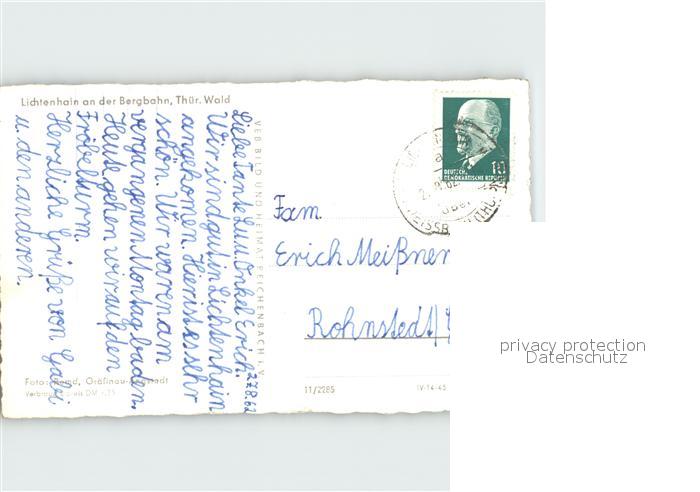 Lichtenhain an der Bergbahn, Thür. Wald
27.8.62
Liebe Tante Lu u. Onkel Erich.
Wir sind gut in Lichtenhain
angekommen. Hier ist es sehr
schön. Wir waren am
vergangenen Montag baden.
Heute gehen wir auf den
Fröbelturm.
Herzliche Grüße von Gabi
u. den anderen.
VEB BILD UND HEIMAT REICHENBACH I. V.
DEUTSCHE
DEMOKRATISCHE REPUBLIK
10
Fam.
Erich Meißner
Rohnstedt/
Foto: Remd, Gräfinau-Angstedt
11/2285
IV-14-45
privacy protection
Datenschutz